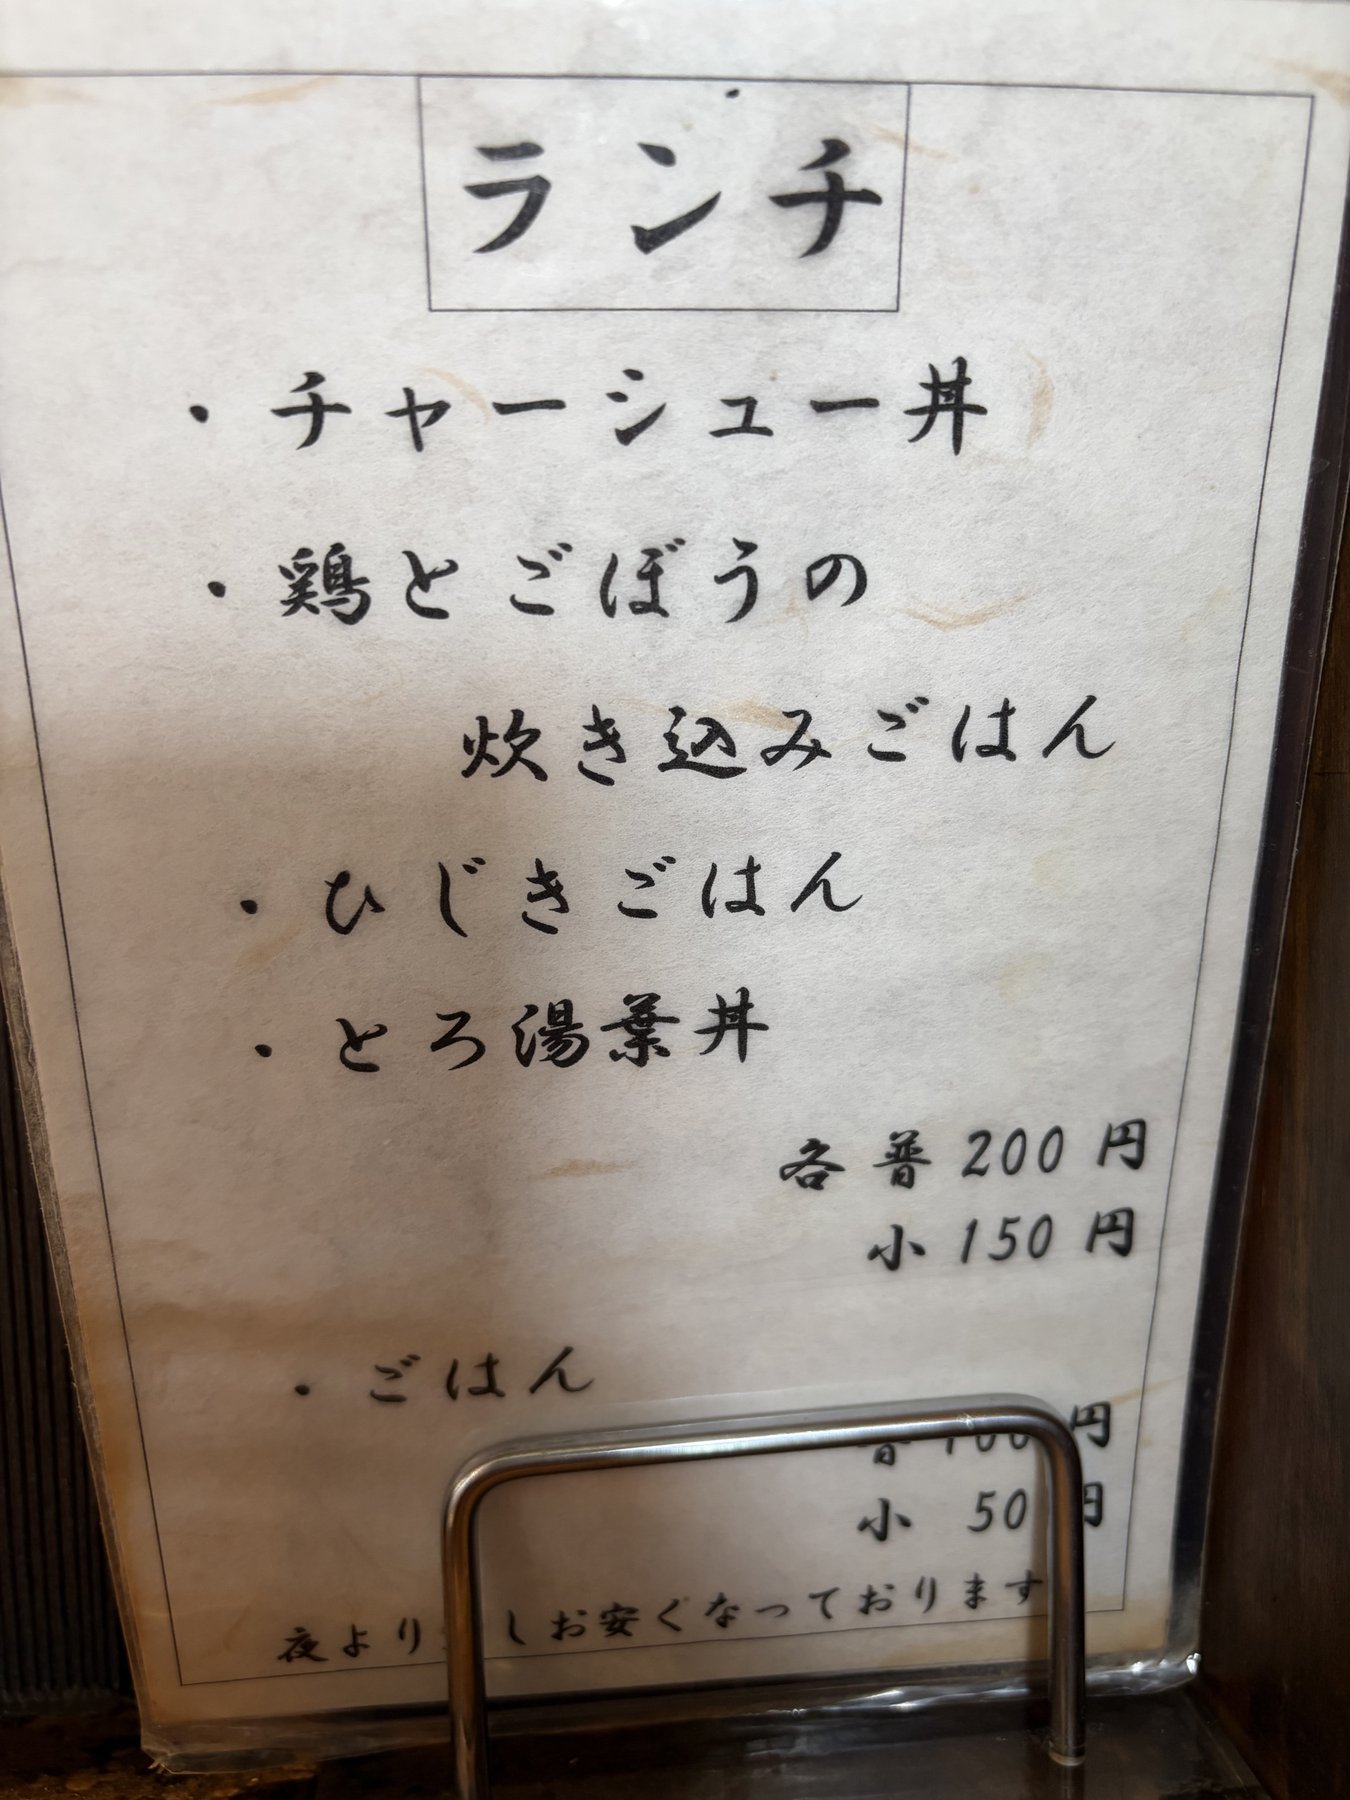 ランチ
・チャーシュー丼
・鶏とごぼうの
炊き込みごはん
・ひじきごはん
・とろ湯葉丼
各普200円
小150円
・ごはん
普100円
小 50円
夜より しお安くなっております